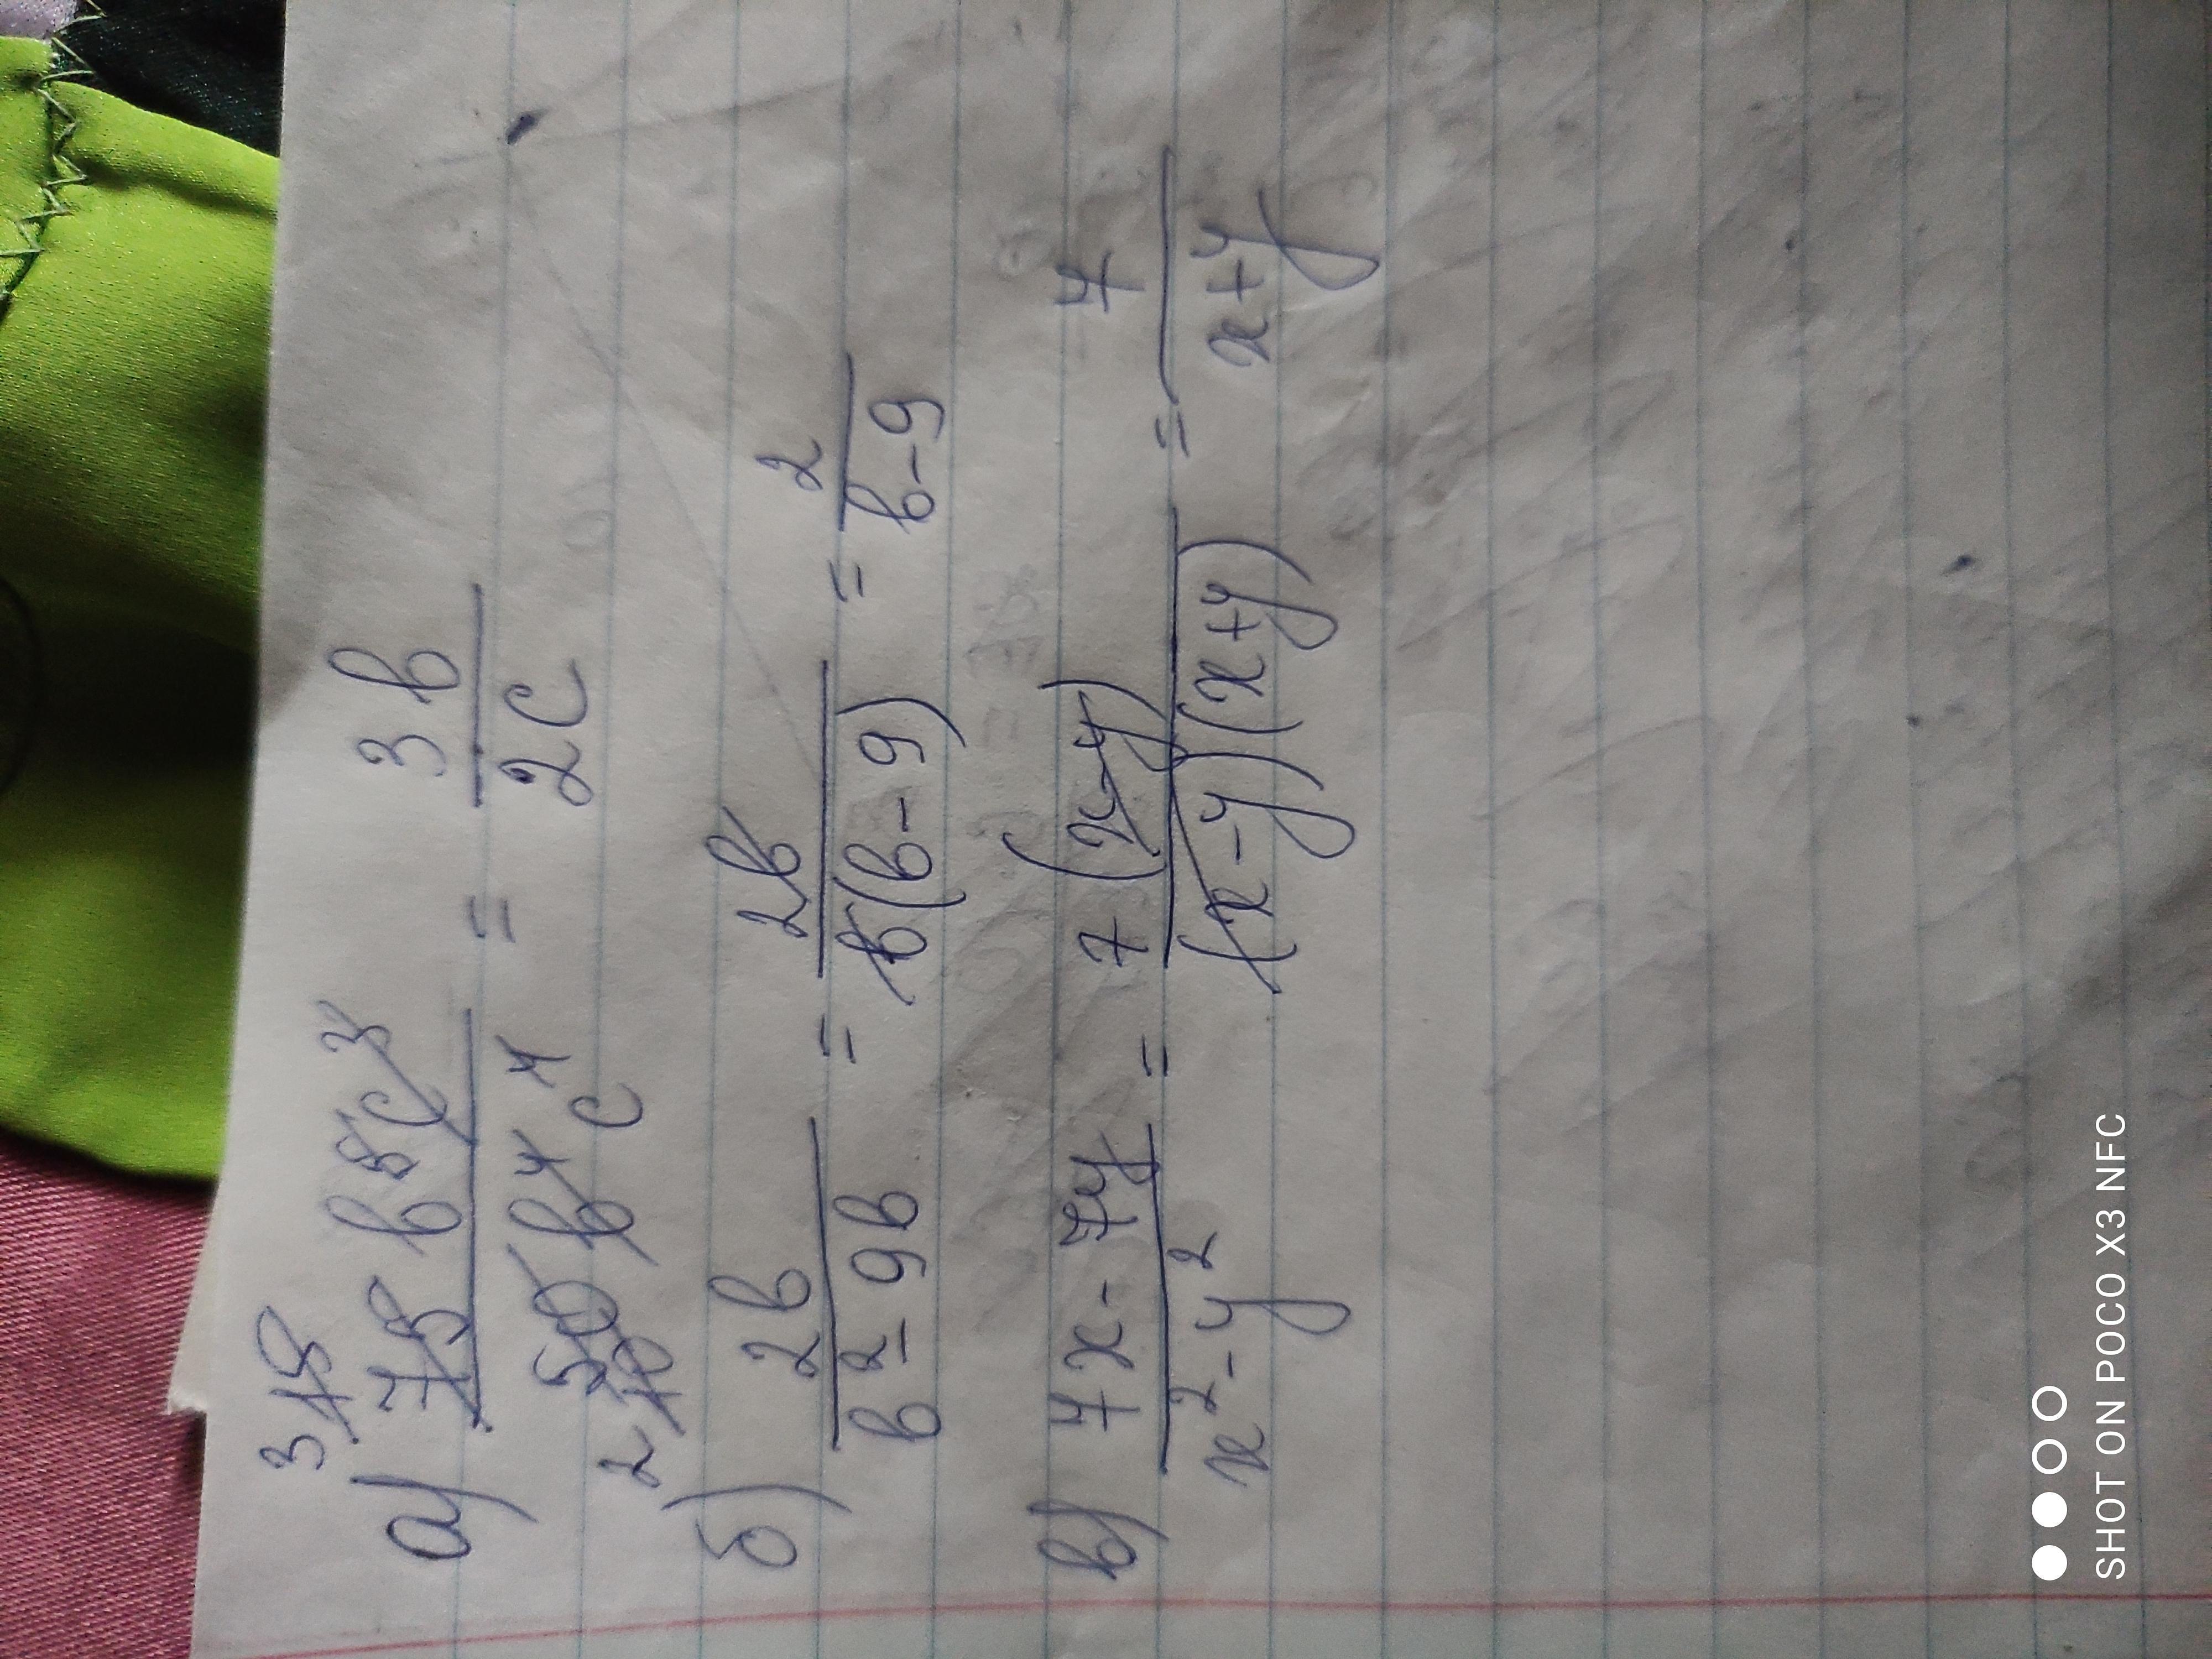 3 15
а) 75 b⁵c³ / 50 b⁴c⁴ = 3b / 2c
2 10
б) 2b / b² - 9b = 2b / b(b - 9) = 2 / b-9
в) 7x - 7y / x² - y² = 7 (x-y) / (x - y)(x+y) = 7 / x+y
SHOT ON POCO X3 NFC